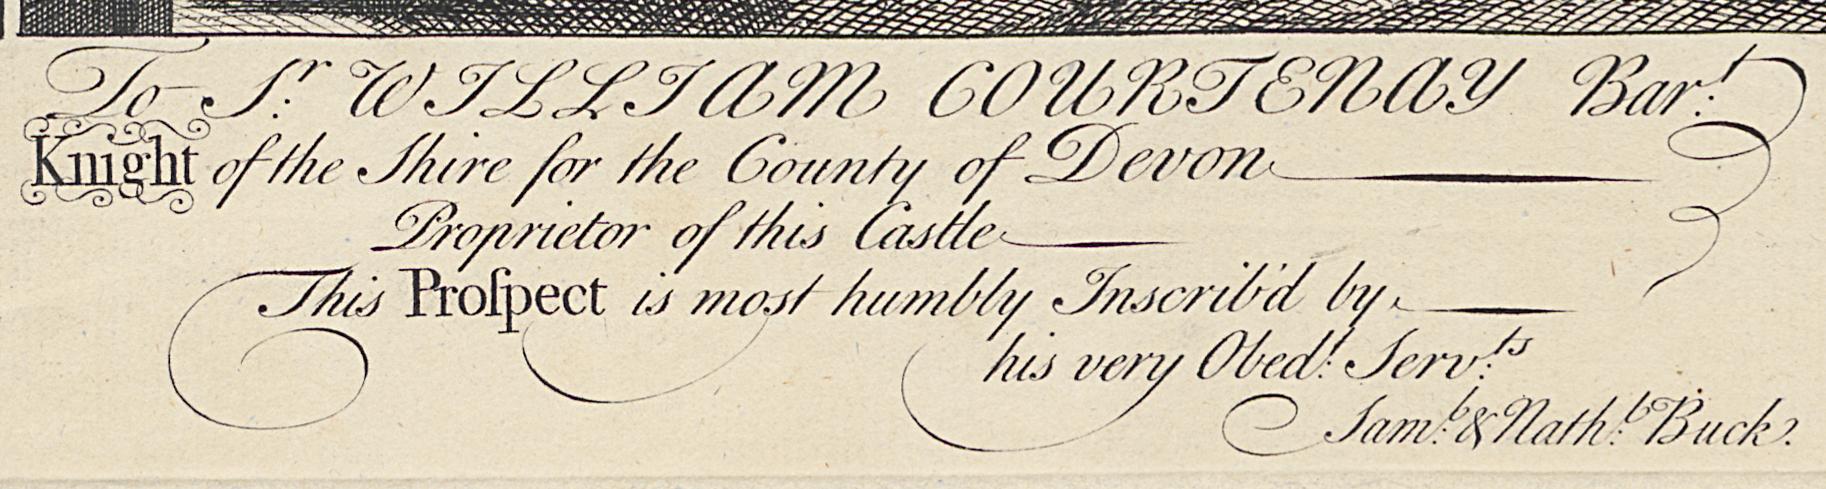 To S.r WILLIAM COURTENAY Bar.t
Knight of the Shire for the County of Devon
Proprietor of this Castle
This Proſpect is most humbly Inscrib'd by
his very Obed.t Serv.ts
Sam.l & Nath.l Buck.